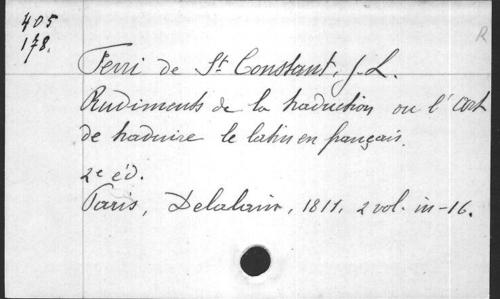 405
178.
R
Ferri de St Constant, J. L.
Rudiments de la traduction ou l'art
de traduire le latin en français.
2e éd.
Paris, Delalain, 1811. 2 vol. in-16.